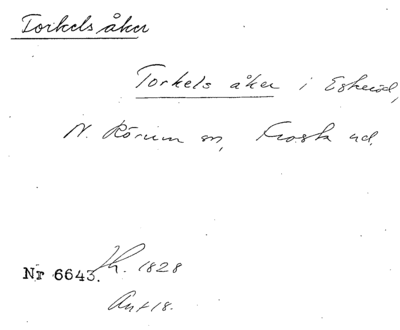 Torkels åker
Torkels åker i Eskeröd,
N. Rörum sn, Frosta hd.
Nr 6643. Jh. 1828
Ant 18.